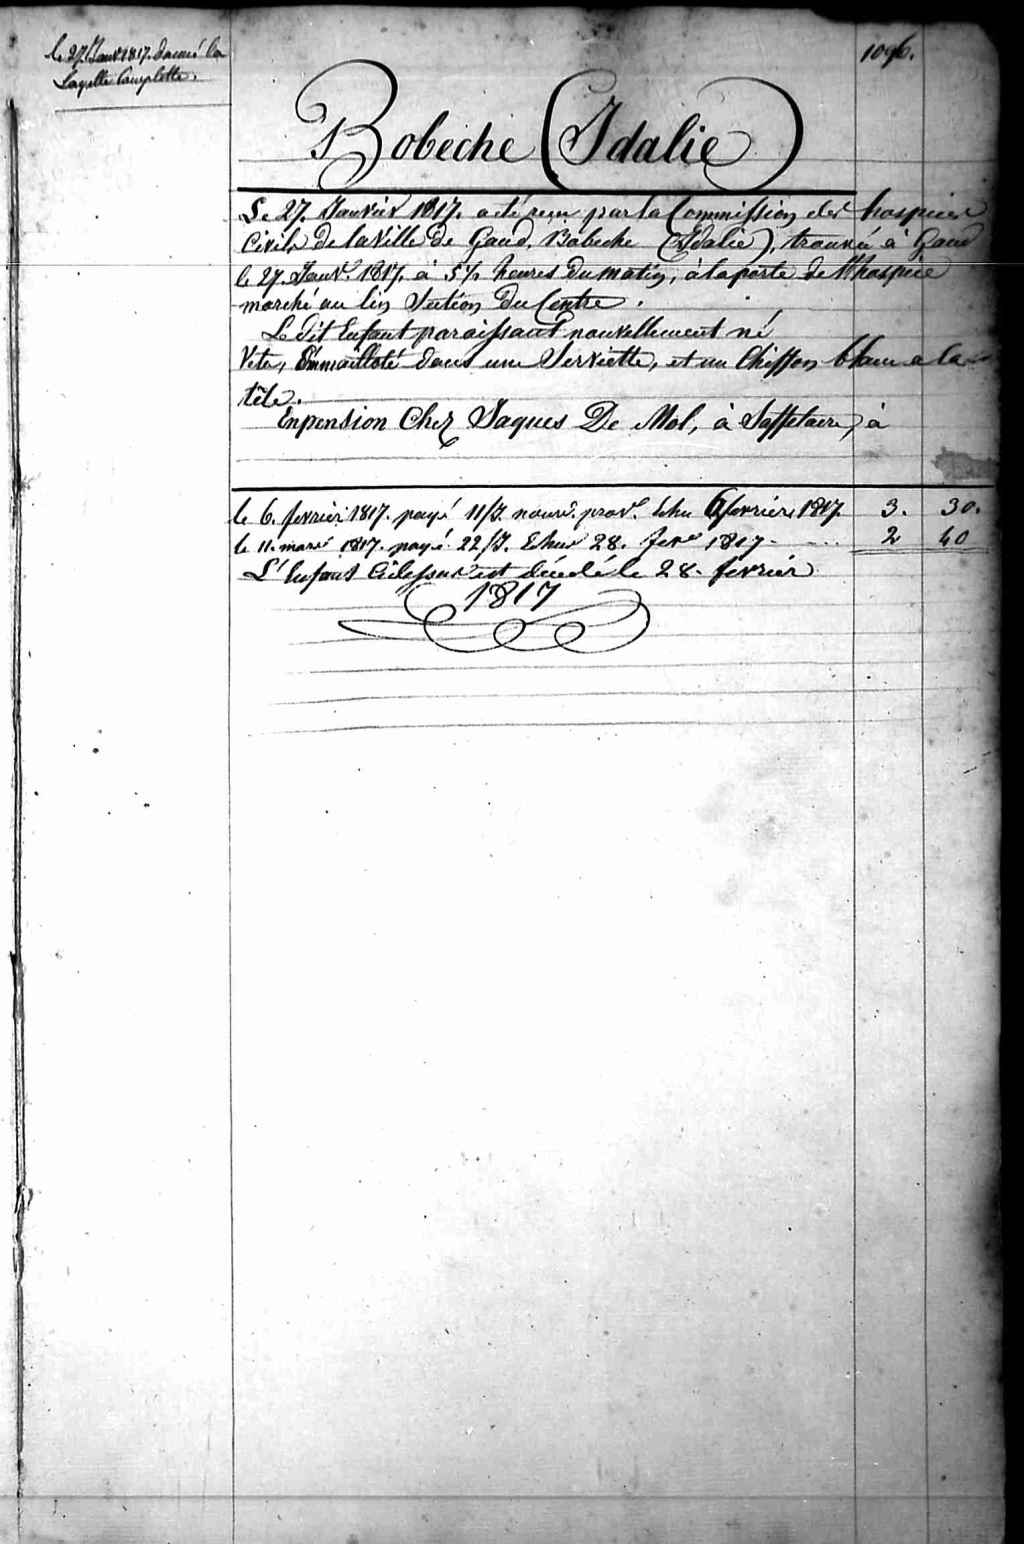 le 27. Janv. 1817. donné la
Layette Complette.
1096.
Bobeche (Idalie)
Le 27. Janvier 1817. a été reçu par la Commission des hospices
Civils de la Ville de Gand, Bobeche (Idalie), trouvée à Gand
le 27. Janvr. 1817. à 5½ heures du matin, à la porte de l'hospice
marché au lin Section Du Centre.
Le dit Enfant paraissant nouvellement né
Vetu, Emmailloté dans une Serviette, et un Chiffon blanc a la
tête.
En pension Chez Jaques De Mol, à Saffelaere, à
le 6. fevrier 1817. payé 11/J. nourre. provre. Echu 6 fevrier 1817. 3. 30.
le 11. mars 1817. payé 22/J. Echu 28. fevr 1817 - .... 2 40
L'Enfant Cidessus est décédé le 28. février
1817